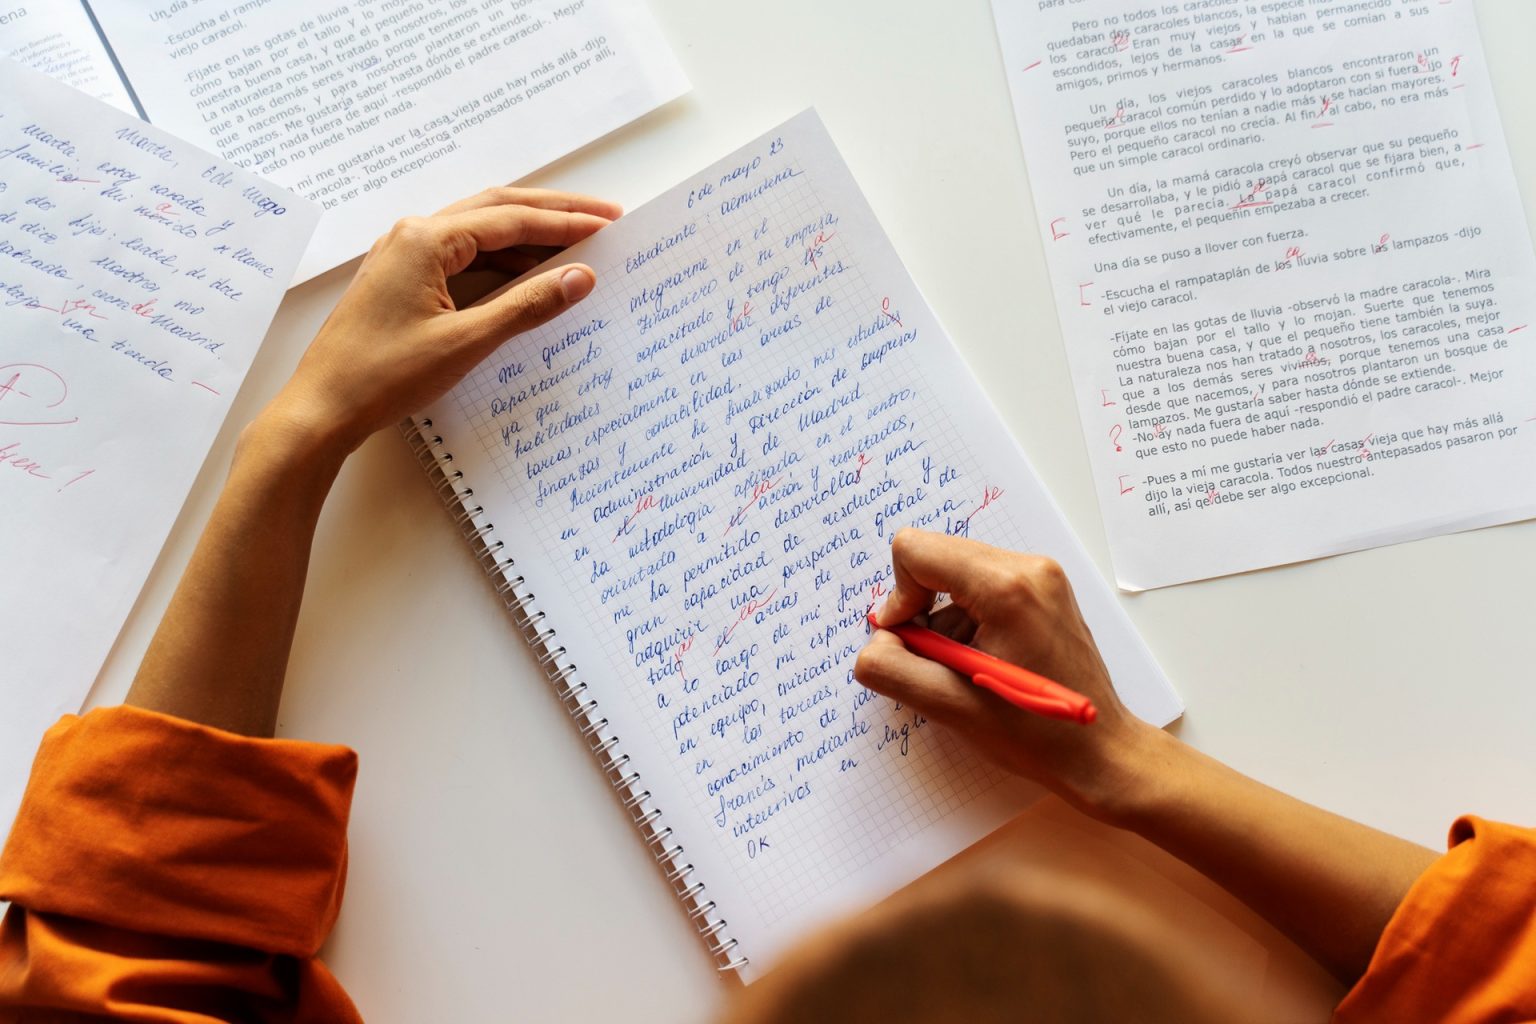 Un día se puso a
-Escucha el rampat
viejo caracol.
-Fíjate en las gotas de lluvia -obs
cómo bajan por el tallo y lo mojan.
nuestra buena casa, y que el pequeño t
La naturaleza nos han tratado a nosotros, los
que a los demás seres vivos, porque tenemos una
que nacemos, y para nosotros plantaron un bo
lampazos. Me gustaría saber hasta dónde se extiende.
-No hay nada fuera de aquí -respondió el padre caracol-. Mejor
esto no puede haber nada.
a mí me gustaría ver la casa vieja que hay más allá -dijo
caracola-. Todos nuestros antepasados pasaron por allí,
be ser algo excepcional.
Marta, 6 de mayo
Marta. estoy casada y
familia. Mi marido se llama
dos hijos: Isabel, de doce
nosotros
cerca de Madrid.
en una tienda
A-
bien!
6 de mayo 23
Estudiante: Almudena
Me gustaría integrarme en el
Departamento Financiero de su empresa,
ya que estoy capacitado y tengo las
habilidades para desarrollar diferentes
tareas, especialmente en las áreas de
finanzas y contabilidad.
Recientemente he finalizado mis estudios
en administración y Dirección de empresas
en el la Universidad de Madrid
La metodología aplicada en el centro,
orientada a el la acción y resultados,
me ha permitido desarrollar una
gran capacidad de resolución y
adquirir una perspectiva global de
todo el la áreas de la empresa.
a lo largo de mi formac
potenciado mi espíritu
en equipo, iniciativa
en las tareas,
conocimiento de
francés, mediante
intensivos en
OK
Pero no todos los caracoles
quedaban dos caracoles blancos, la especie más
los caracol. Eran muy viejos y habían permanecido
escondidos, lejos de la casas en la que se comían a sus
amigos, primos y hermanos.
Un día, los viejos caracoles blancos encontraron un
pequeña caracol común perdido y lo adoptaron con si fuera ijo
suyo, porque ellos no tenían a nadie más y se hacían mayores.
Pero el pequeño caracol no crecía. Al fin al cabo, no era más
que un simple caracol ordinario.
Un día, la mamá caracola creyó observar que su pequeño
se desarrollaba, y le pidió a papá caracol que se fijara bien, a
ver qué le parecía. La papá caracol confirmó que,
efectivamente, el pequeñín empezaba a crecer.
Una día se puso a llover con fuerza.
-Escucha el rampataplán de los lluvia sobre las lampazos -dijo
el viejo caracol.
-Fíjate en las gotas de lluvia -observó la madre caracola-. Mira
cómo bajan por el tallo y lo mojan. Suerte que tenemos
nuestra buena casa, y que el pequeño tiene también la suya.
La naturaleza nos han tratado a nosotros, los caracoles, mejor
que a los demás seres vivimos, porque tenemos una casa
desde que nacemos, y para nosotros plantaron un bosque de
lampazos. Me gustaría saber hasta dónde se extiende.
-No ay nada fuera de aquí -respondió el padre caracol-. Mejor
que esto no puede haber nada.
-Pues a mí me gustaría ver las casas vieja que hay más allá
dijo la vieja caracola. Todos nuestro antepasados pasaron por
allí, así qe debe ser algo excepcional.